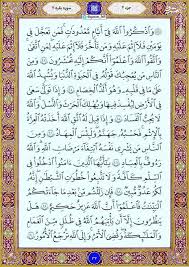 سوره بقره ٢
جزء ٢
۞ وَٱذْكُرُوا۟ ٱللَّهَ فِىٓ أَيَّامٍ مَّعْدُودَٰتٍ فَمَن تَعَجَّلَ فِى
يَوْمَيْنِ فَلَآ إِثْمَ عَلَيْهِ وَمَن تَأَخَّرَ فَلَآ إِثْمَ عَلَيْهِ لِمَنِ
ٱتَّقَىٰ وَٱتَّقُوا۟ ٱللَّهَ وَٱعْلَمُوٓا۟ أَنَّكُمْ إِلَيْهِ تُحْشَرُونَ ٢٠٣ وَمِنَ
ٱلنَّاسِ مَن يُعْجِبُكَ قَوْلُهُۥ فِى ٱلْحَيَوٰةِ ٱلدُّنْيَا وَيُشْهِدُ ٱللَّهَ
عَلَىٰ مَا فِى قَلْبِهِۦ وَهُوَ أَلَدُّ ٱلْخِصَامِ ٢٠٤ وَإِذَا تَوَلَّىٰ سَعَىٰ
فِى ٱلْأَرْضِ لِيُفْسِدَ فِيهَا وَيُهْلِكَ ٱلْحَرْثَ وَٱلنَّسْلَ وَٱللَّهُ
لَا يُحِبُّ ٱلْفَسَادَ ٢٠٥ وَإِذَا قِيلَ لَهُ ٱتَّقِ ٱللَّهَ أَخَذَتْهُ ٱلْعِزَّةُ
بِٱلْإِثْمِ فَحَسْبُهُۥ جَهَنَّمُ وَلَبِئْسَ ٱلْمِهَادُ ٢٠٦ وَمِنَ ٱلنَّاسِ
مَن يَشْرِى نَفْسَهُ ٱبْتِغَآءَ مَرْضَاتِ ٱللَّهِ وَٱللَّهُ
رَءُوفٌۢ بِٱلْعِبَادِ ٢٠٧ يَٰٓأَيُّهَا ٱلَّذِينَ ءَامَنُوا۟ ٱدْخُلُوا۟ فِى
ٱلسِّلْمِ كَآفَّةً وَلَا تَتَّبِعُوا۟ خُطُوَٰتِ ٱلشَّيْطَٰنِ إِنَّهُۥ
لَكُمْ عَدُوٌّ مُّبِينٌ ٢٠٨ فَإِن زَلَلْتُم مِّنۢ بَعْدِ مَا جَآءَتْكُمُ
ٱلْبَيِّنَٰتُ فَٱعْلَمُوٓا۟ أَنَّ ٱللَّهَ عَزِيزٌ حَكِيمٌ ٢٠٩ هَلْ
يَنظُرُونَ إِلَّآ أَن يَأْتِيَهُمُ ٱللَّهُ فِى ظُلَلٍ مِّنَ ٱلْغَمَامِ
وَٱلْمَلَٰٓئِكَةُ وَقُضِىَ ٱلْأَمْرُ وَإِلَى ٱللَّهِ تُرْجَعُ ٱلْأُمُورُ ٢١٠
٣٢